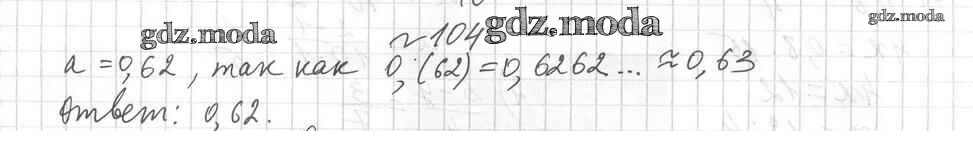 gdz.moda
gdz.moda
gdz.moda
~104
a = 0,62, так как 0,(62) = 0,6262... ≈ 0,63
Ответ: 0,62.